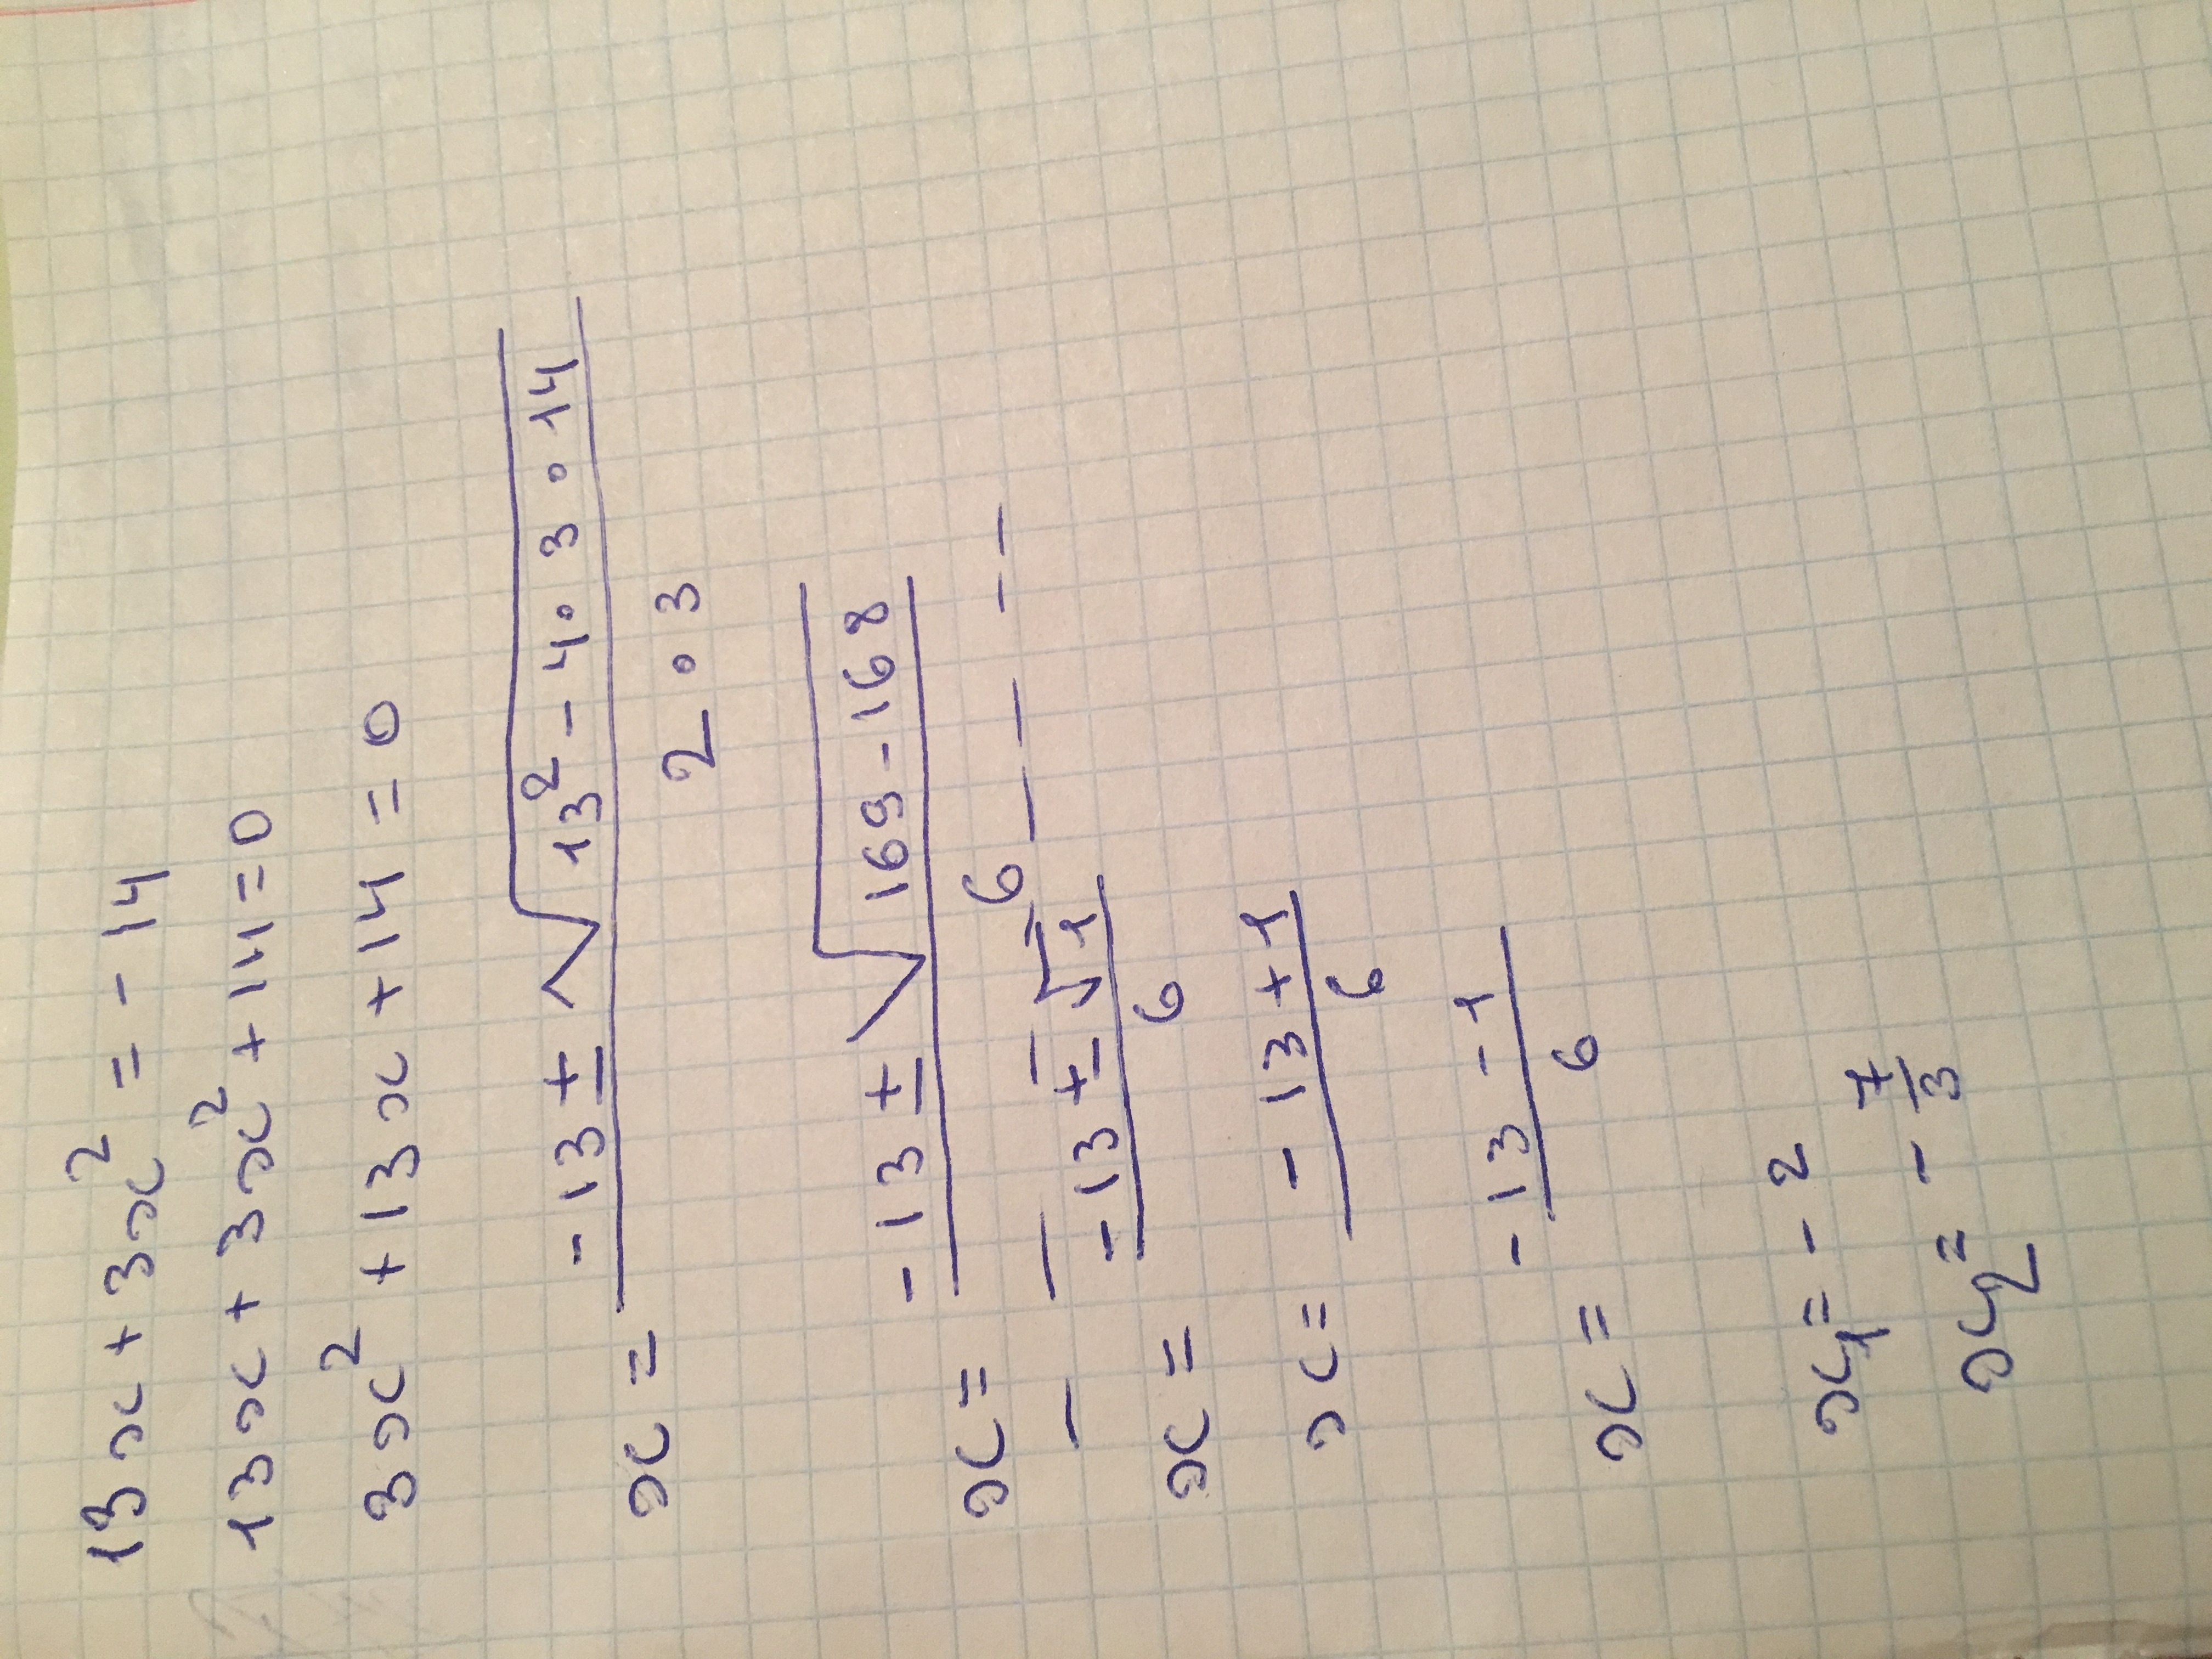 13x + 3x² = - 14
13x + 3x² + 14 = 0
3x² + 13x + 14 = 0
x = (-13 ± √(13² - 4 · 3 · 14)) / (2 · 3)
x = (-13 ± √(169 - 168)) / 6
x = (-13 ± √1) / 6
x = (-13 + 1) / 6
x = (-13 - 1) / 6
x₁ = - 2
x₂ = - 7/3